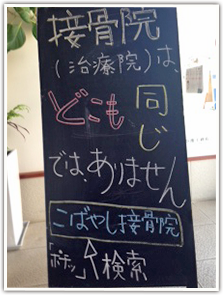 接骨院
(治療院)は、
どこも同じ
では、ありません
こばやし接骨院
「ポチッ」検索